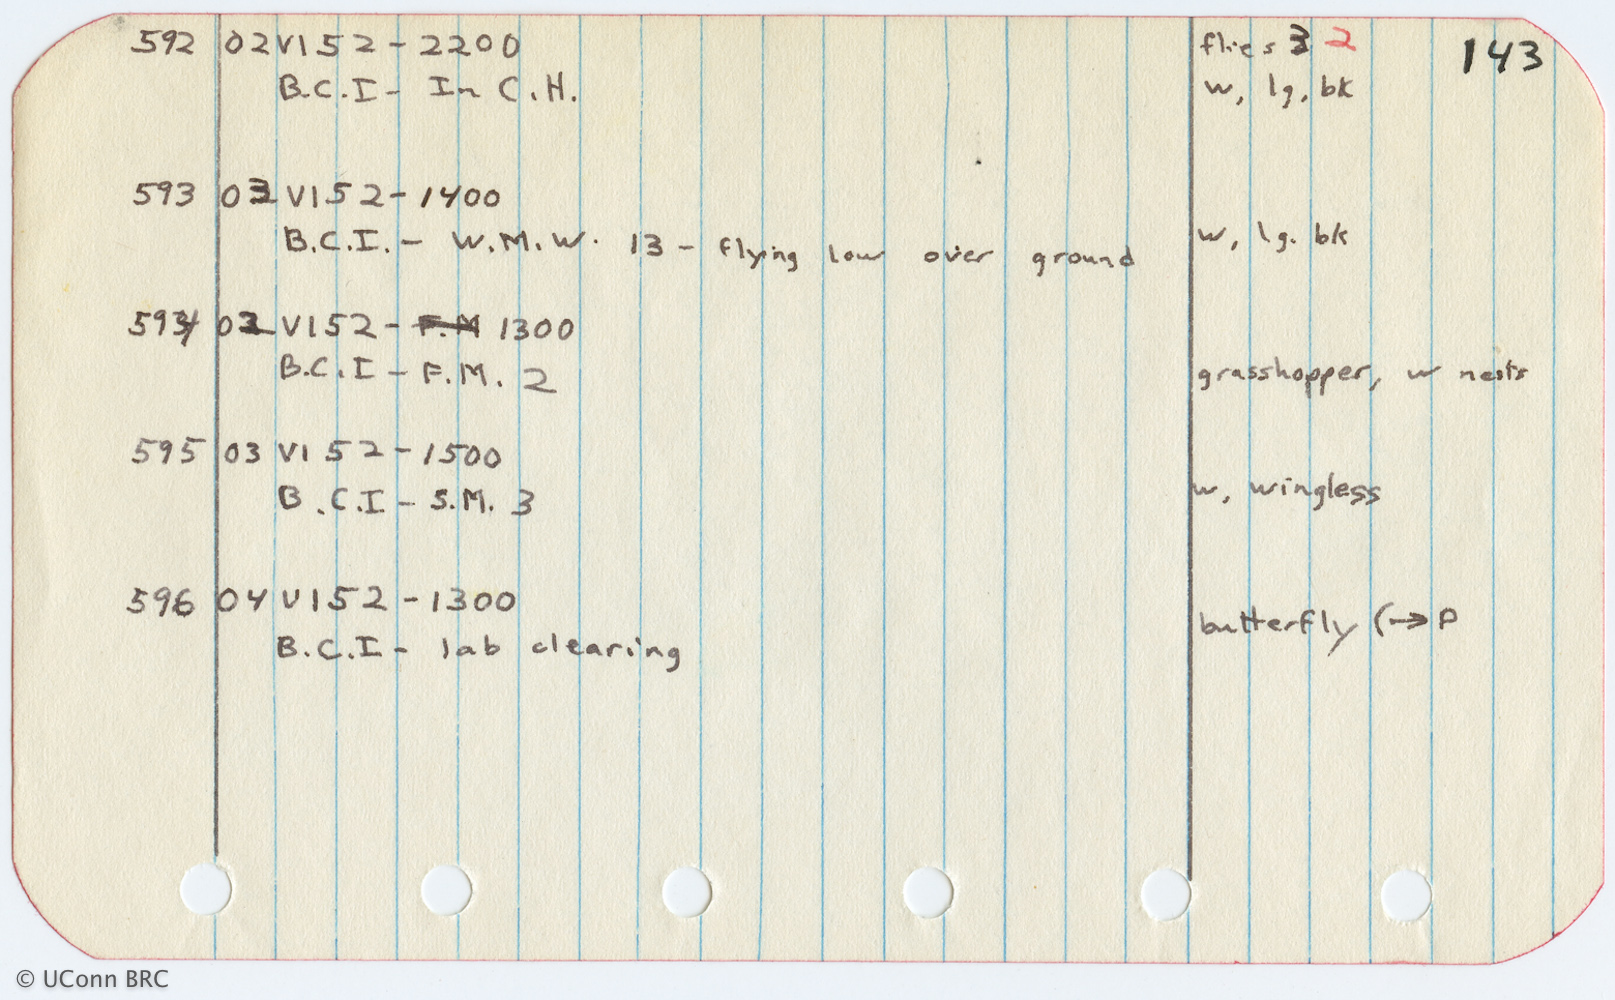 143
592 02 VI 52 - 2200 flies 3 2
B.C.I - In C.H. w, lg, bk
593 03 VI 52 - 1400
B.C.I. - W.M.W. 13 - flying low over ground w, lg. bk
594 03 VI 52 - F.M 1300
B.C.I - F.M. 2 grasshopper, w nests
595 03 VI 52 - 1500
B.C.I - S.M. 3 w, wingless
596 04 VI 52 - 1300
B.C.I - lab clearing butterfly (→ P
© UConn BRC